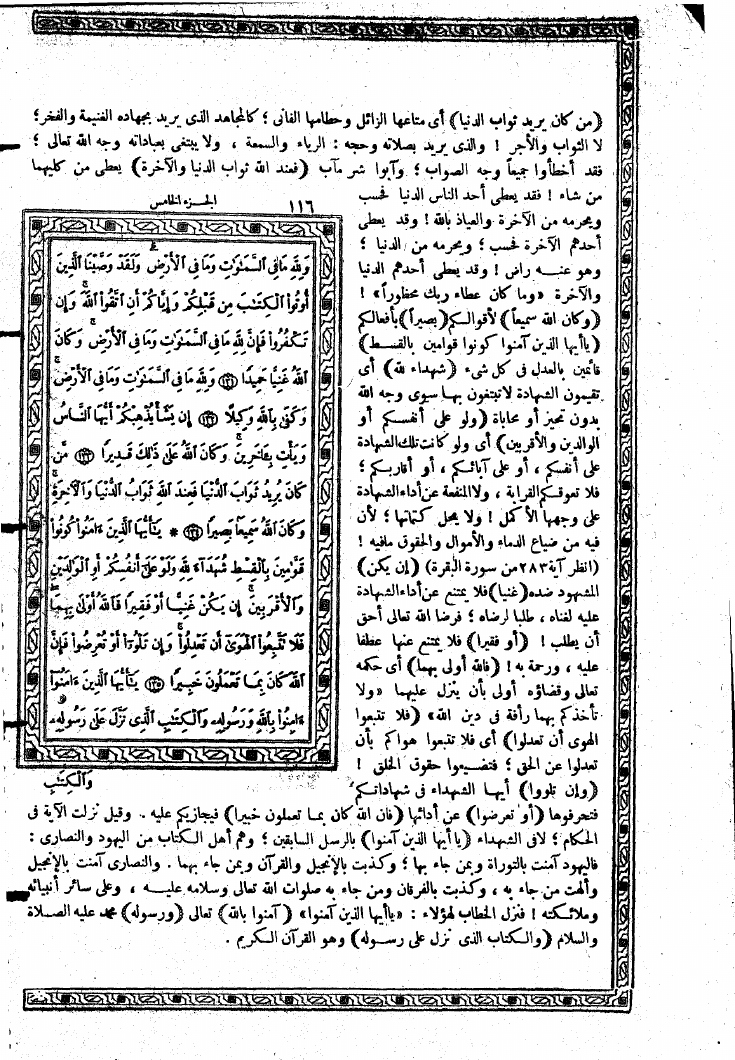 (من كان يريد ثواب الدنيا) أى متاعها الزائل وحطامها الفانى ؛ كالمجاهد الذى يريد بجهاده الغنيمة والفخر؛
لا الثواب والأجر ! والذى يريد بصلاته وحجه : الرياء والسمعة ، ولا يبتغى بعباداته وجه الله تعالى ؛
فقد أخطأوا جميعاً وجه الصواب ؛ وآبوا شر مآب (فعند الله ثواب الدنيا والآخرة) يعطى من كليهما
من شاء ! فقد يعطى أحد الناس الدنيا فحسب
ويحرمه من الآخرة والعياذ بالله ! وقد يعطى
أحدهم الآخرة فحسب ؛ ويحرمه من الدنيا ؛
وهو عنه راض ! وقد يعطى أحدهم الدنيا
والآخرة «وما كان عطاء ربك محظوراً» !
(وكان الله سميعاً) لأقوالكم (بصيراً) بأفعالكم
(ياأيها الذين آمنوا كونوا قوامين بالقسط)
قائمين بالعدل فى كل شىء (شهداء لله) أى
تقيمون الشهادة لاتبتغون بها سوى وجه الله
بدون تحيز أو محاباة (ولو على أنفسكم أو
الوالدين والأقربين) أى ولو كانت تلك الشهادة
على أنفسكم ، أو على آبائكم ، أو أقاربكم ؛
فلا تعوقكم القرابة ، ولا المنفعة عن أداء الشهادة
على وجهها الأكمل ! ولا يحل كتمانها ؛ لأن
فيه من ضياع الدماء والأموال والحقوق مافيه !
(انظر آية ٢٨٣ من سورة البقرة) (إن يكن)
المشهود ضده (غنيا) فلا يمتنع عن أداء الشهادة
عليه لغناه ، طلبا لرضاه ؛ فرضا الله تعالى أحق
أن يطلب ! (أو فقيرا) فلا يمتنع عنها عطفا
عليه ، ورحمة به ! (فالله أولى بهما) أى حكمه
تعالى وقضاؤه أولى بأن ينزل عليهما «ولا
تأخذكم بهما رأفة فى دين الله» (فلا تتبعوا
الهوى أن تعدلوا) أى فلا تتبعوا هواكم بأن
تعدلوا عن الحق ؛ فتضيعوا حقوق الخلق !
(وإن تلووا) أيها الشهداء فى شهاداتكم
فتحرفوها (أو تعرضوا) عن أدائها (فان الله كان بما تعملون خبيرا) فيجازيكم عليه . وقيل نزلت الآية فى
الحكام ؛ لافى الشهداء (ياأيها الذين آمنوا) بالرسل السابقين ؛ وهم أهل الكتاب من اليهود والنصارى :
فاليهود آمنت بالتوراة وبمن جاء بها ؛ وكذبت بالإنجيل والقرآن وبمن جاء بهما . والنصارى آمنت بالإنجيل
وألهت من جاء به ، وكذبت بالفرقان ومن جاء به صلوات الله تعالى وسلامه عليه ، وعلى سائر أنبيائه
وملائكته ! فنزل الخطاب لهؤلاء : «ياأيها الذين آمنوا» (آمنوا بالله) تعالى (ورسوله) محمد عليه الصلاة
والسلام (والكتاب الذى نزل على رسوله) وهو القرآن الكريم .
١١٦ الجزء الخامس
وَلِلَّهِ مَا فِي السَّمَٰوَٰتِ وَمَا فِي الْأَرْضِ وَلَقَدْ وَصَّيْنَا الَّذِينَ
أُوتُوا الْكِتَٰبَ مِن قَبْلِكُمْ وَإِيَّاكُمْ أَنِ اتَّقُوا اللَّهَ وَإِن
تَكْفُرُوا فَإِنَّ لِلَّهِ مَا فِي السَّمَٰوَٰتِ وَمَا فِي الْأَرْضِ وَكَانَ
اللَّهُ غَنِيًّا حَمِيدًا ﴿١٣١﴾ وَلِلَّهِ مَا فِي السَّمَٰوَٰتِ وَمَا فِي الْأَرْضِ
وَكَفَىٰ بِاللَّهِ وَكِيلًا ﴿١٣٢﴾ إِن يَشَأْ يُذْهِبْكُمْ أَيُّهَا النَّاسُ
وَيَأْتِ بِـَٔاخَرِينَ وَكَانَ اللَّهُ عَلَىٰ ذَٰلِكَ قَدِيرًا ﴿١٣٣﴾ مَّن
كَانَ يُرِيدُ ثَوَابَ الدُّنْيَا فَعِندَ اللَّهِ ثَوَابُ الدُّنْيَا وَالْآخِرَةِ
وَكَانَ اللَّهُ سَمِيعًا بَصِيرًا ﴿١٣٤﴾ * يَٰٓأَيُّهَا الَّذِينَ ءَامَنُوا كُونُوا
قَوَّٰمِينَ بِالْقِسْطِ شُهَدَآءَ لِلَّهِ وَلَوْ عَلَىٰ أَنفُسِكُمْ أَوِ الْوَٰلِدَيْنِ
وَالْأَقْرَبِينَ إِن يَكُنْ غَنِيًّا أَوْ فَقِيرًا فَاللَّهُ أَوْلَىٰ بِهِمَا
فَلَا تَتَّبِعُوا الْهَوَىٰٓ أَن تَعْدِلُوا وَإِن تَلْوُۥٓا أَوْ تُعْرِضُوا فَإِنَّ
اللَّهَ كَانَ بِمَا تَعْمَلُونَ خَبِيرًا ﴿١٣٥﴾ يَٰٓأَيُّهَا الَّذِينَ ءَامَنُوٓا
ءَامِنُوا بِاللَّهِ وَرَسُولِهِۦ وَالْكِتَٰبِ الَّذِي نَزَّلَ عَلَىٰ رَسُولِهِۦ
وَالْكِتَٰبِ